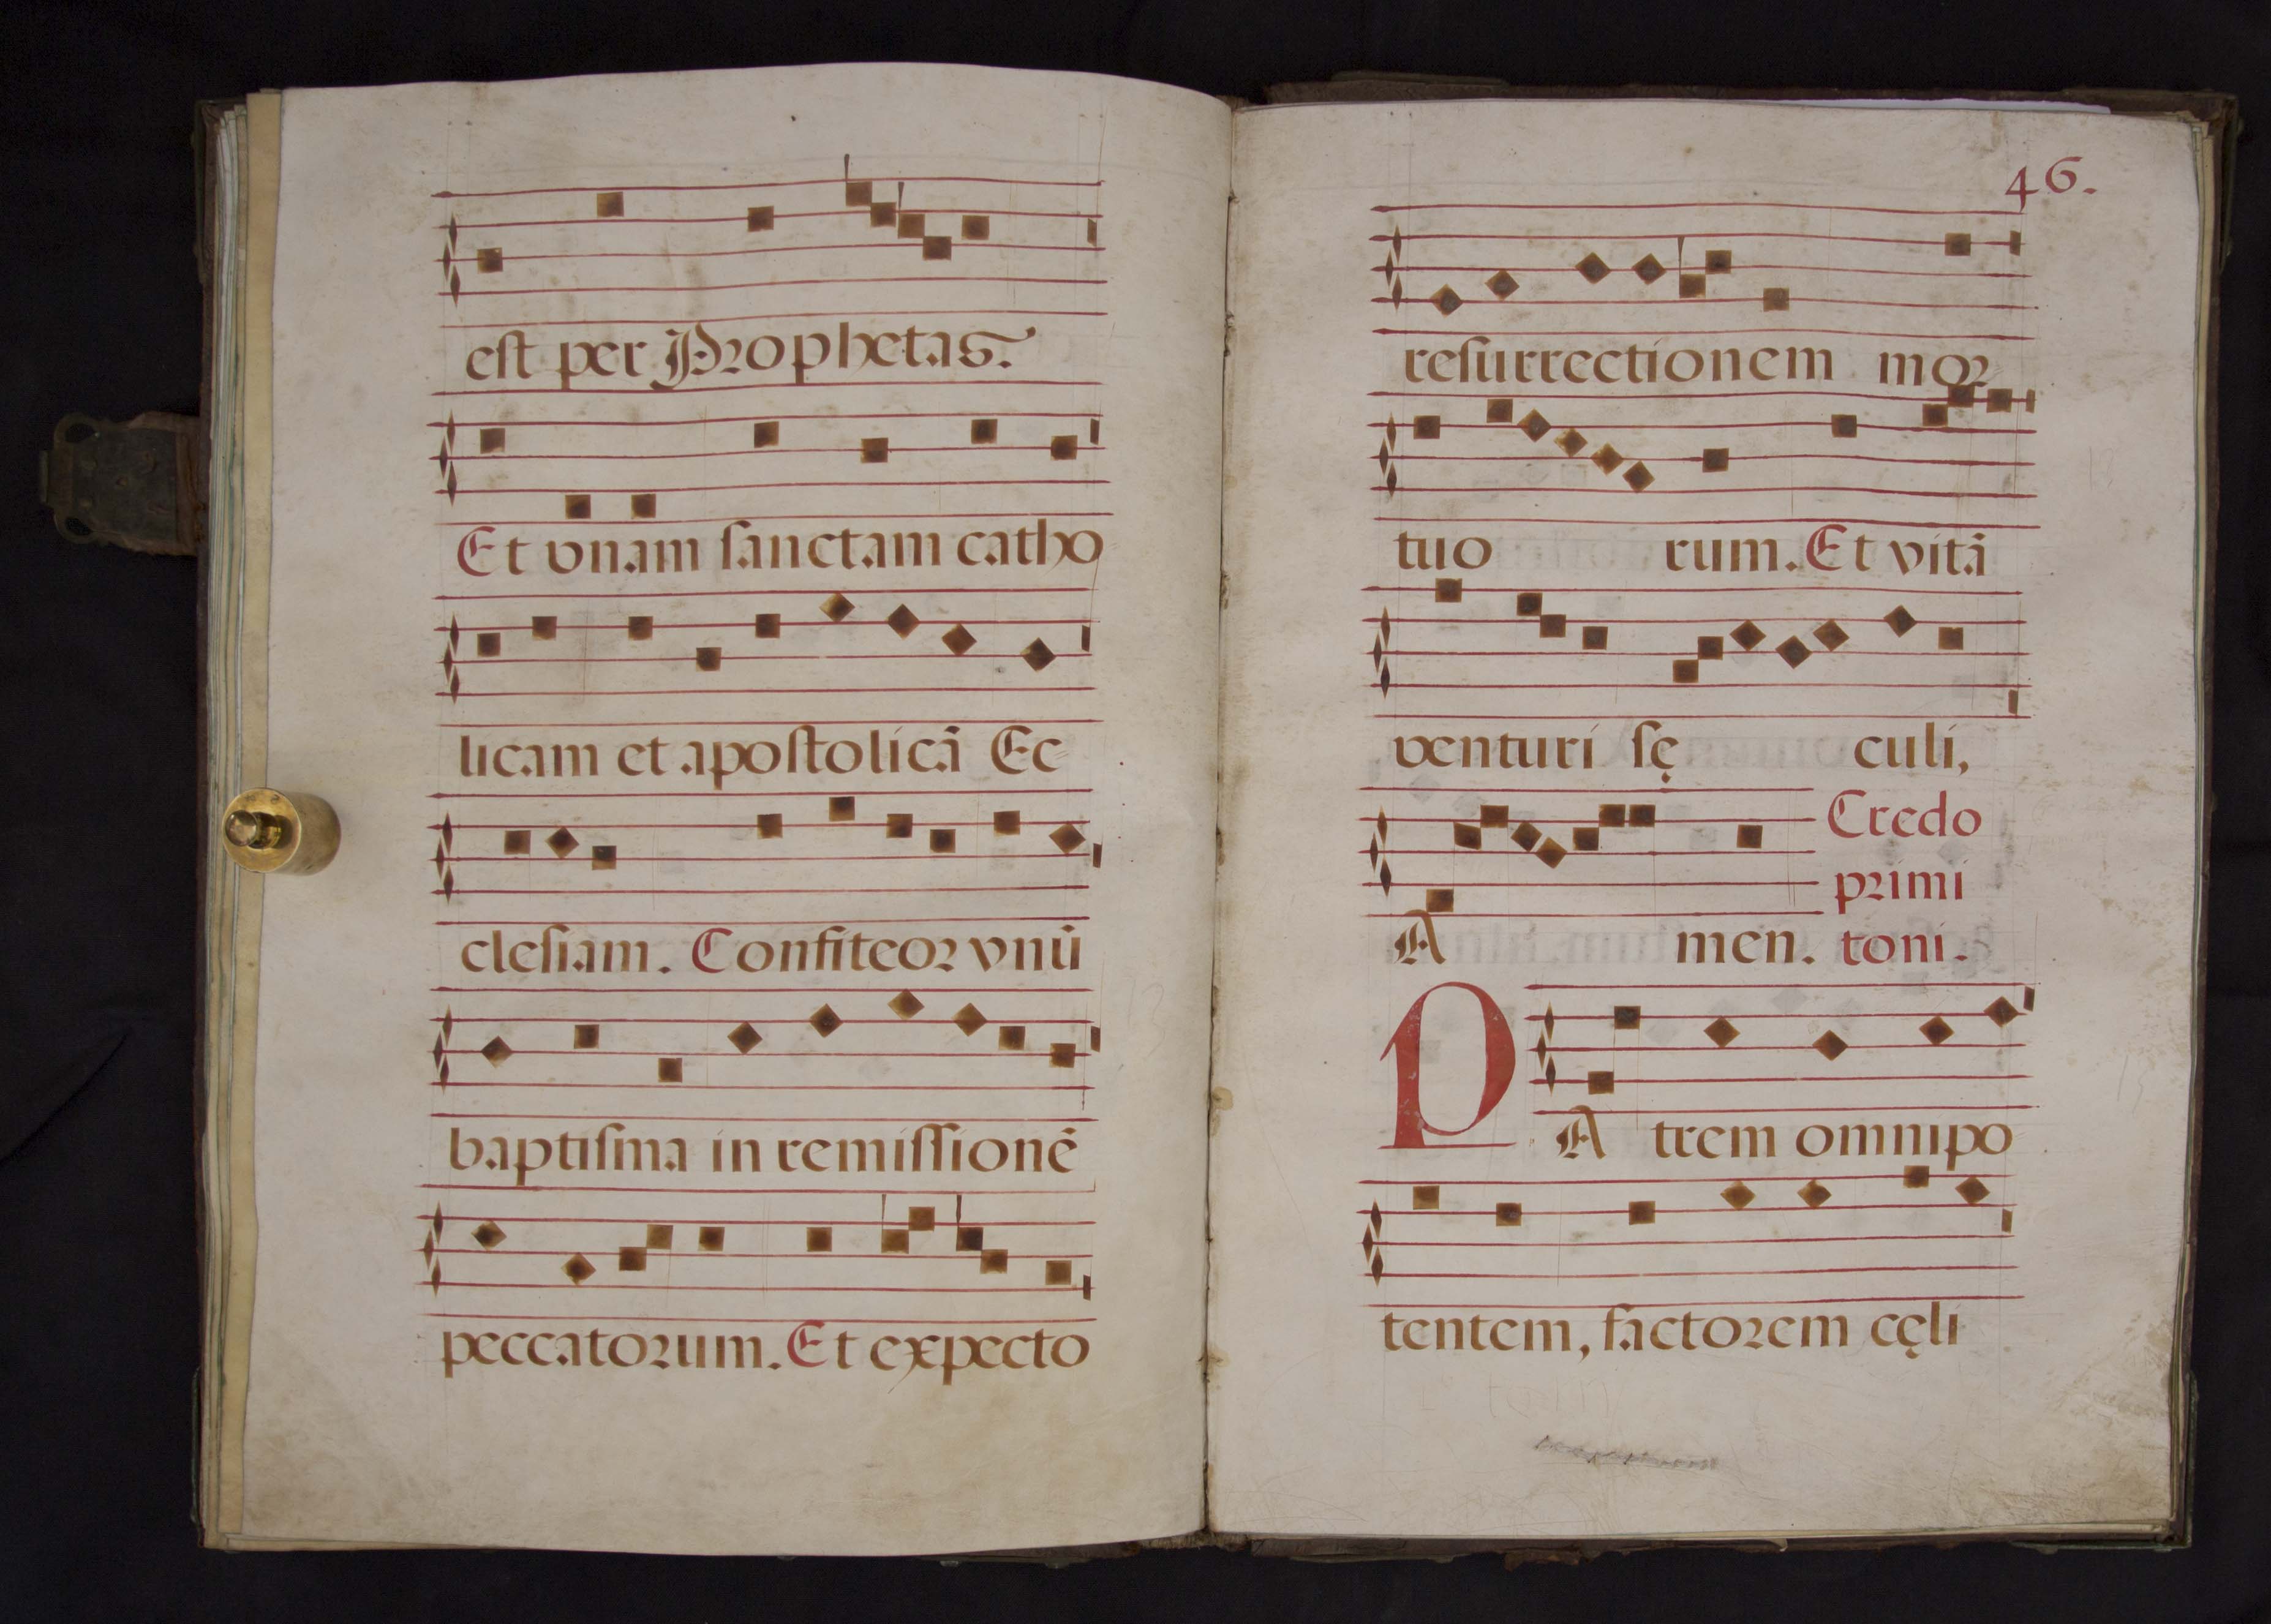 est per Prophetas.
Et vnam sanctam catho
licam et apostolicā Ec
clesiam. Confiteor vnū
baptisma in remissionē
peccatorum. Et expecto
46.
resurrectionem mor
tuo rum. Et vitā
venturi sę culi,
A men.
Credo
primi
toni.
PA trem omnipo
tentem, factorem cęli